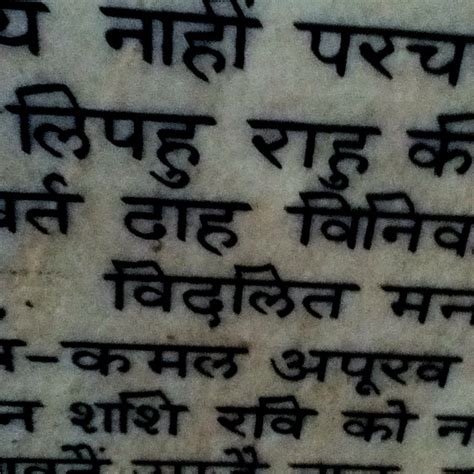 य नाहीं परच
लिपहु राहु की
वर्त दाह विनिव
विदलित मन
-कमल अपूरव
न शशि रवि को न